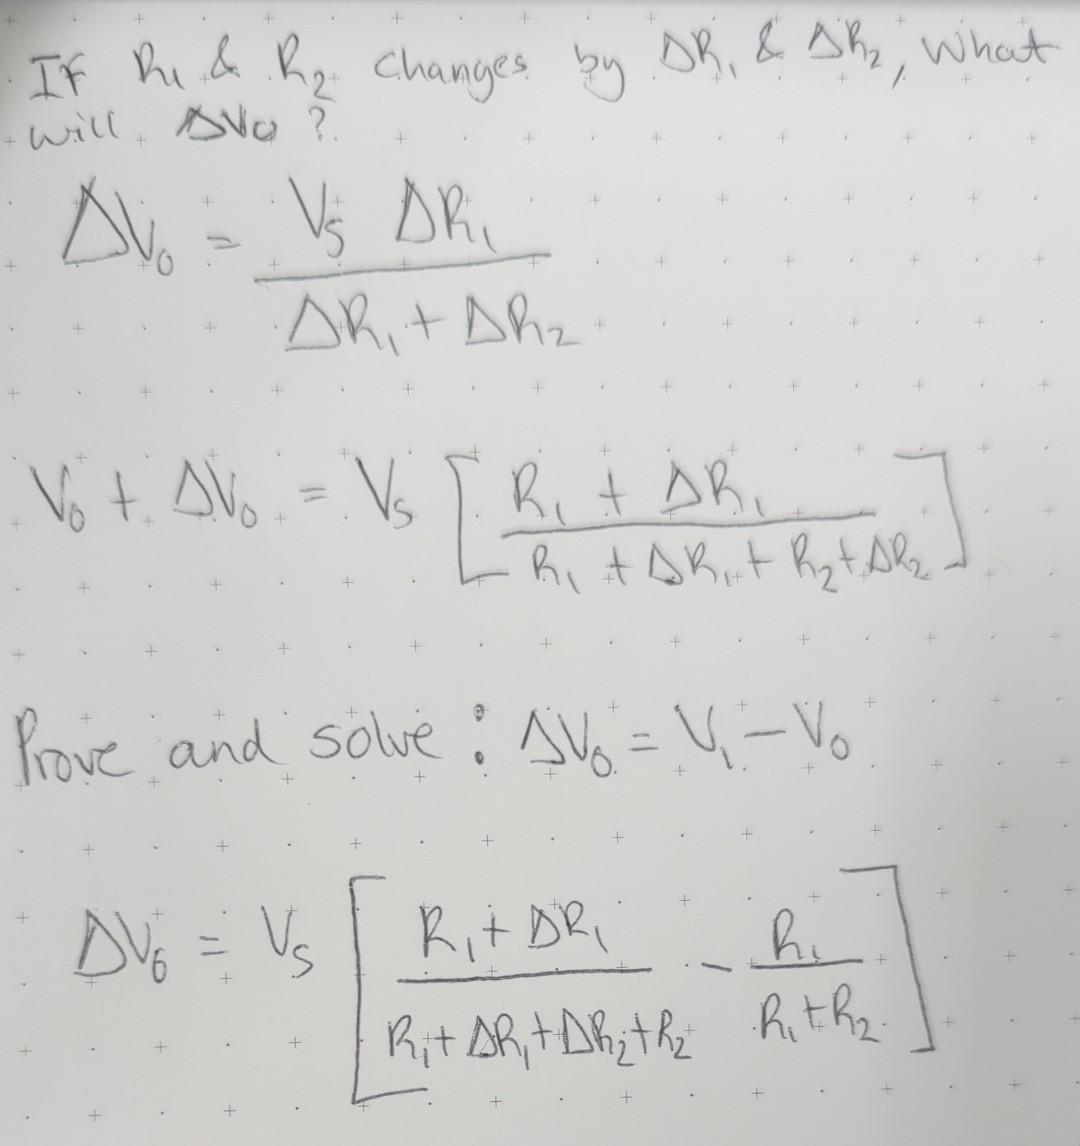 If R₁ & R₂ changes by ΔR₁ & ΔR₂, What
will ΔV₀ ?
ΔV₀ = Vₛ ΔR₁ / (ΔR₁ + ΔR₂)
V₀ + ΔV₀ = Vₛ [ (R₁ + ΔR₁) / (R₁ + ΔR₁ + R₂ + ΔR₂) ]
Prove and solve : ΔV₀ = V₁ − V₀
ΔV₀ = Vₛ [ (R₁ + ΔR₁) / (R₁ + ΔR₁ + ΔR₂ + R₂) − R₁ / (R₁ + R₂) ]